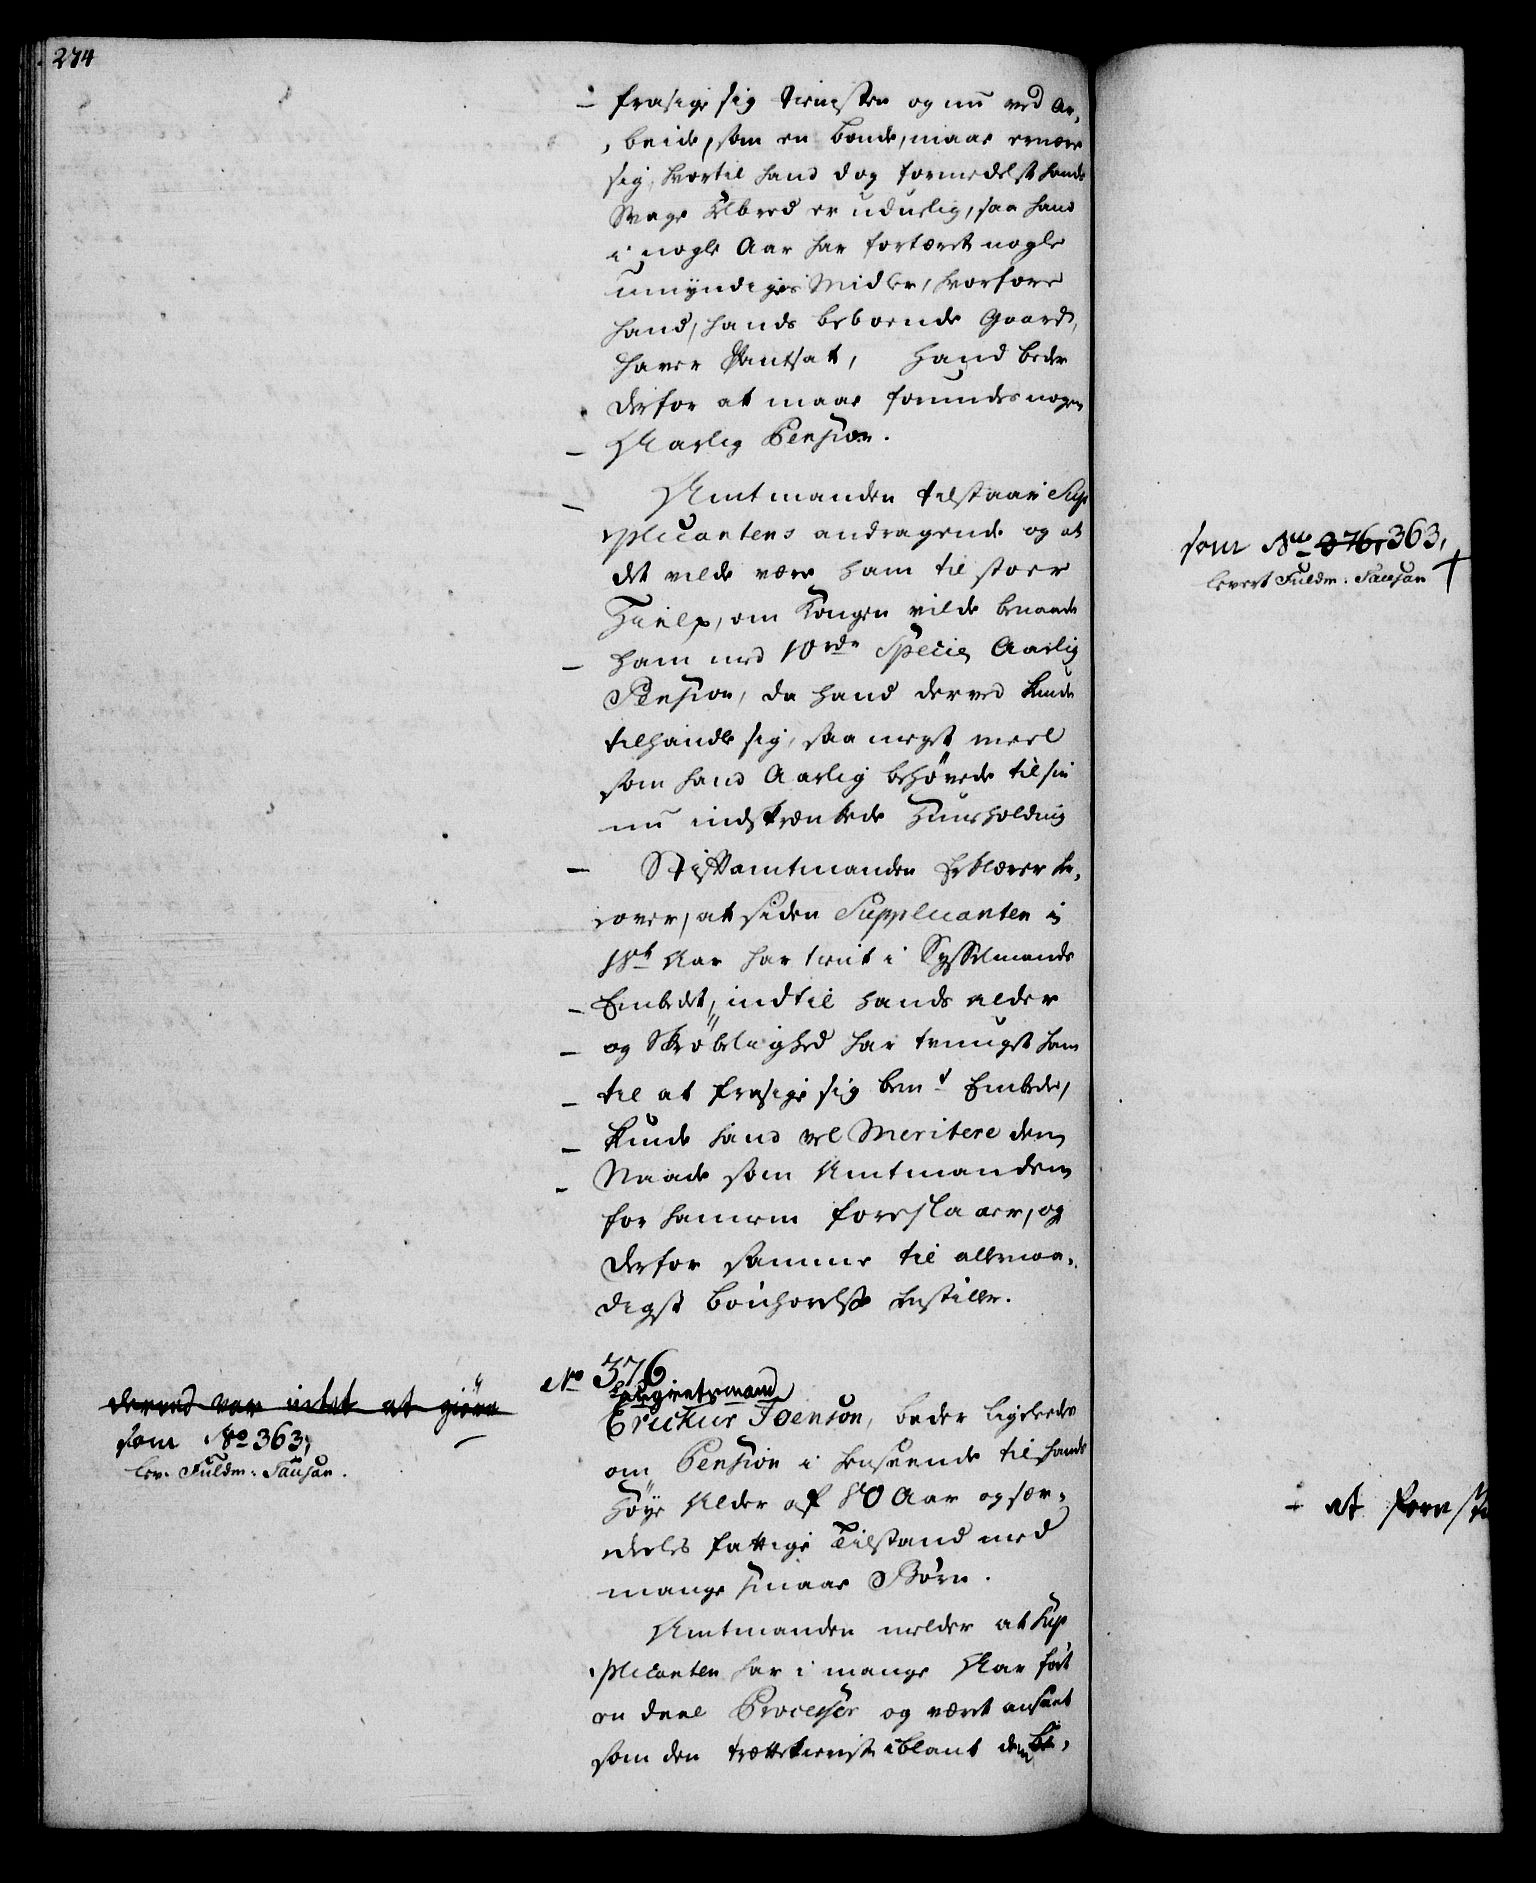 274
frasige sig tienisten og nu ved Ar,
,beide, som en bonde, maae ernære
sig, hvortil hand dog formedelst hands
svage Helbred er uduelig, saa hand
i nogle Aar har fortæret nogle
umyndiges Midler, hvorfore
hand, hands beboende Gaard,
haver Pantsat, Hand beder
derfor at maae forundes nogen
Aarlig Pension.
Amtmanden tilstaaer Sup
plicantens andragende og at
det vilde være ham til stoer
Hielp, om Kongen vilde benaade
ham med 10 rdr Specie Aarlig
Pension, da hand derved kunde
tilhandle sig, saa meget meel
som hand Aarlig behøvede til sin
nu indskrænkede Huusholding
Stiftamtmanden Erklærer her,
over, at siden Supplicanten i
18t Aar har tient i Sysselmands
Embedet, indtil hands alder
og Skrøbelighed har tvunget ham
til at frasige sig bemt Embede,
kunde hand vel Meritere den
Naade som Amtmanden
for hannem foreslaaer, og
derfor samme til allernaa,
digst bønhørelse indstiller.
No 376
Laugretsmand
Erichur Joenson, beder ligeledes
om Pension i henseende til hands
høye Alder af 80 Aar og sær,
deeles fattige Tilstand med
mange smaae Børn.
Amtmanden melder at Sup
plicanten har i mange Aar ført
en deel Processer og været anseet
som den trættekierist iblant dem be,
derved var intet at giøre
som No 363,
lev. Fuldm. Tausan.
som No 376, 363,
levert Fuldm. Tausan
at fore